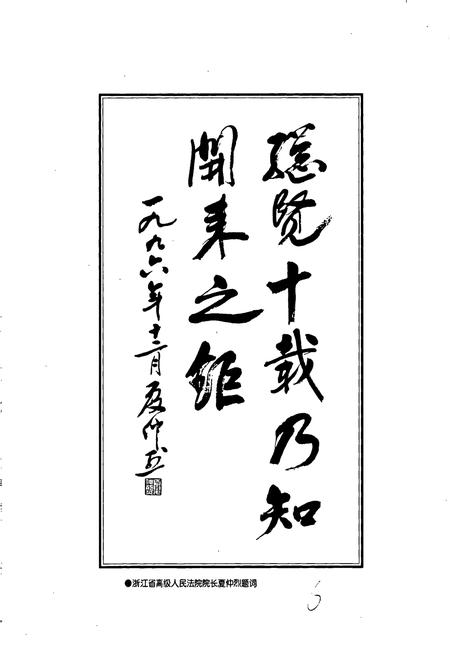 總览十载乃知
開来之鉅
一九九六年十二月 夏仲烈
●浙江省高级人民法院院长夏仲烈题词